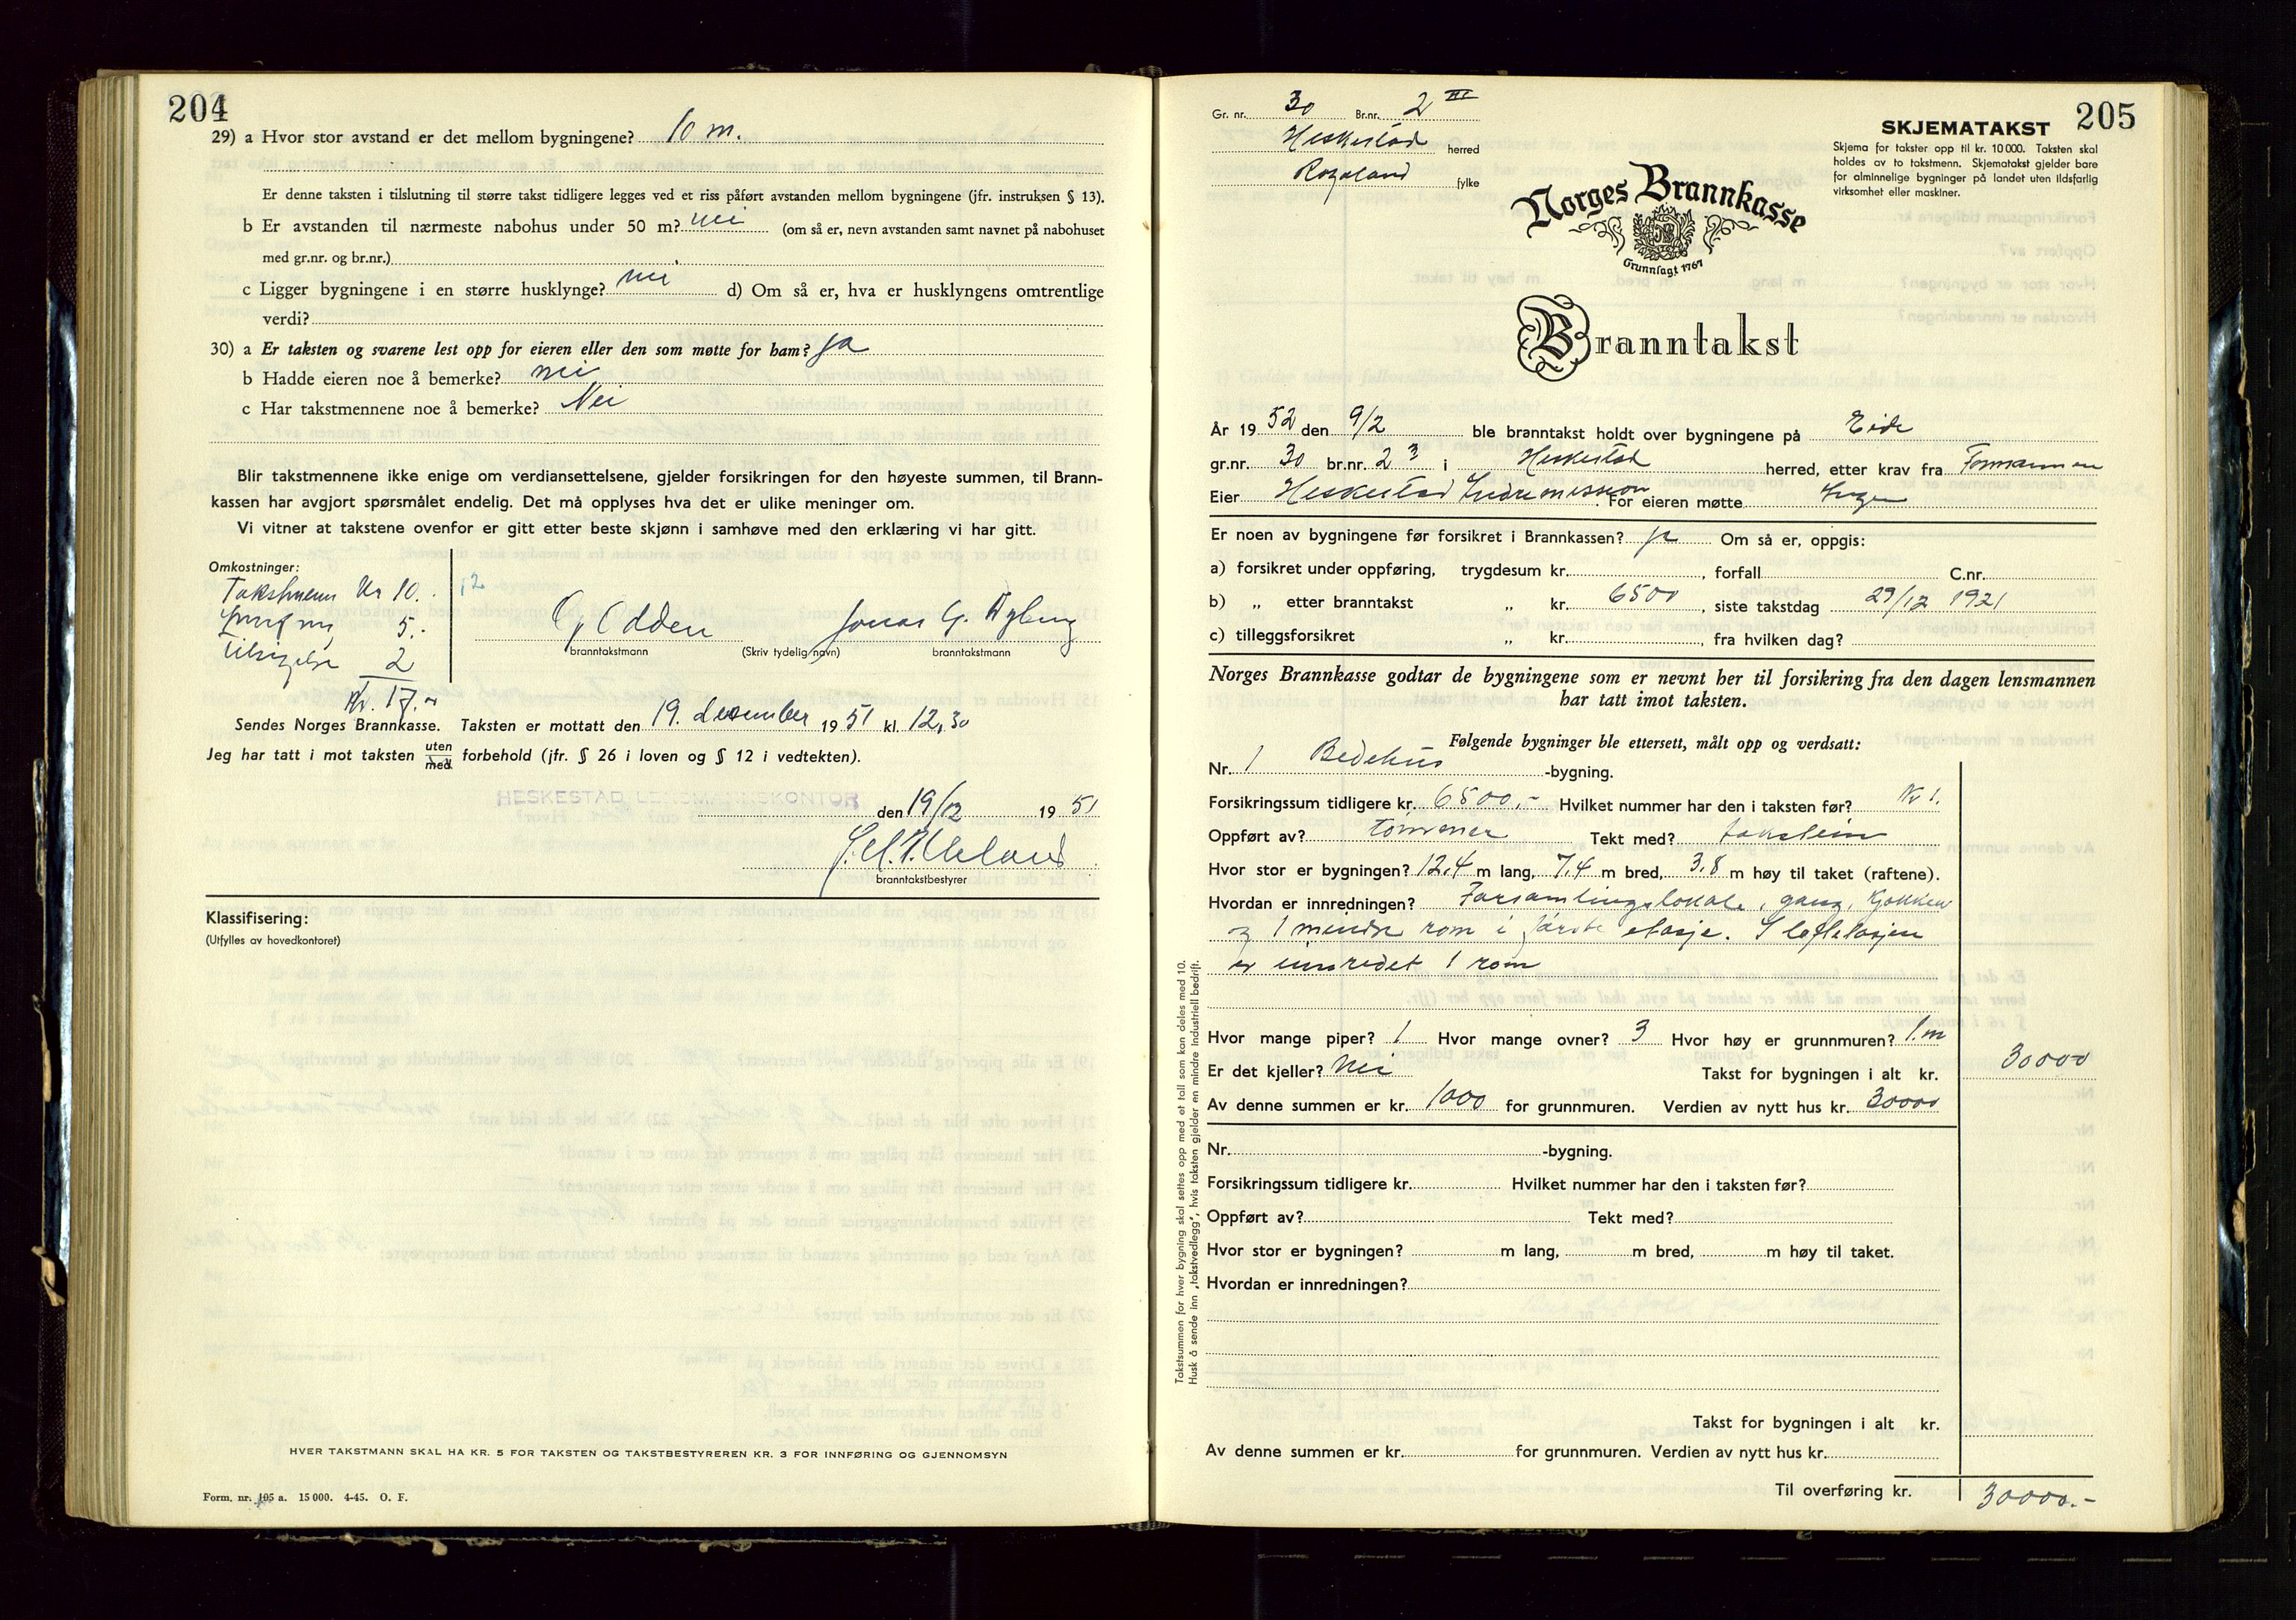 204
29) a Hvor stor avstand er det mellom bygningene? 10 m.
Er denne taksten i tilslutning til større takst tidligere legges ved et riss påført avstanden mellom bygningene (jfr. instruksen § 13).
b Er avstanden til nærmeste nabohus under 50 m? nei (om så er, nevn avstanden samt navnet på nabohuset
med gr.nr. og br.nr.)
c Ligger bygningene i en større husklynge? nei d) Om så er, hva er husklyngens omtrentlige
verdi?
30) a Er taksten og svarene lest opp for eieren eller den som møtte for ham? ja
b Hadde eieren noe å bemerke? nei
c Har takstmennene noe å bemerke? Nei
Blir takstmennene ikke enige om verdiansettelsene, gjelder forsikringen for den høyeste summen, til Brann-
kassen har avgjort spørsmålet endelig. Det må opplyses hva det er ulike meninger om.
Vi vitner at takstene ovenfor er gitt etter beste skjønn i samhøve med den erklæring vi har gitt.
Omkostninger:
Takstmenn Kr 10.
5.-
Tilsigelse 2
Kr. 17.-
12
O. G. Odden
branntakstmann
(Skriv tydelig navn)
Jonas G.
branntakstmann
Sendes Norges Brannkasse. Taksten er mottatt den 19. desember 1951 kl. 12,30
Jeg har tatt i mot taksten uten med forbehold (jfr. § 26 i loven og § 12 i vedtekten).
HESKESTAD LENSMANNSKONTOR
den 19/12 1951
branntakstbestyrer
Klassifisering:
(Utfylles av hovedkontoret)
HVER TAKSTMANN SKAL HA KR. 5 FOR TAKSTEN OG TAKSTBESTYREREN KR. 3 FOR INNFØRING OG GJENNOMSYN
Form. nr. 105 a. 15 000. 4-45. O. F.
205
Gr. nr. 30 Br.nr. 2 III
Heskestad herred
Rogaland fylke
SKJEMATAKST
Skjema for takster opp til kr. 10 000. Taksten skal
holdes av to takstmenn. Skjematakst gjelder bare
for alminnelige bygninger på landet uten ildsfarlig
virksomhet eller maskiner.
Norges Brannkasse
Grunnlagt 1767
Branntakst
År 1952 den 9/2 ble branntakst holdt over bygningene på Eide
gr.nr. 30 br.nr. 2 3 i Heskestad herred, etter krav fra Formannen
Eier Heskestad Indremisjon For eieren møtte Ingen
Er noen av bygningene før forsikret i Brannkassen? ja Om så er, oppgis:
a) forsikret under oppføring, trygdesum kr. , forfall C.nr.
b) „ etter branntakst „ kr. 6500 , siste takstdag 29/12 1921
c) tilleggsforsikret „ kr. , fra hvilken dag?
Norges Brannkasse godtar de bygningene som er nevnt her til forsikring fra den dagen lensmannen
har tatt imot taksten.
Følgende bygninger ble ettersett, målt opp og verdsatt:
Nr. 1 Bedehus -bygning.
Forsikringssum tidligere kr. 6500,- Hvilket nummer har den i taksten før? Nr 1.
Oppført av? tømmer Tekt med? takstein
Hvor stor er bygningen? 12,4 m lang, 7,4 m bred, 3,8 m høy til taket (raftene).
Hvordan er innredningen? Forsamlingslokale, gang, kjøkken
og 1 mindre rom i første etasje. I loftetasjen
er innredet 1 rom
Hvor mange piper? 1 Hvor mange ovner? 3 Hvor høy er grunnmuren? 1 m
Er det kjeller? Nei Takst for bygningen i alt kr. 30000
Av denne summen er kr. 1000 for grunnmuren. Verdien av nytt hus kr. 30000
Nr. -bygning.
Forsikringssum tidligere kr. Hvilket nummer har den i taksten før?
Oppført av? Tekt med?
Hvor stor er bygningen? m lang, m bred, m høy til taket.
Hvordan er innredningen?
Takst for bygningen i alt kr.
Av denne summen er kr. for grunnmuren. Verdien av nytt hus kr.
Til overføring kr. 30000.-
Takstsummen for hver bygning skal settes opp med et tall som kan deles med 10.
Husk å sende inn „takstvedlegg", hvis taksten gjelder en mindre industriell bedrift.